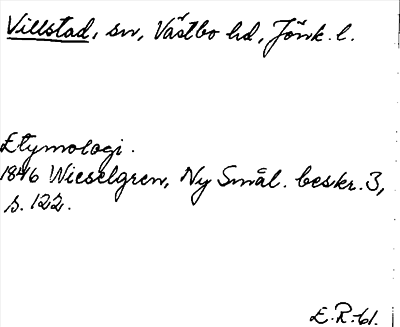 Villstad, sn, Västbo hd, Jönk. l.
Etymologi.
1846 Wieselgren, Ny Smål. beskr. 3,
s. 122.
E.R-61.